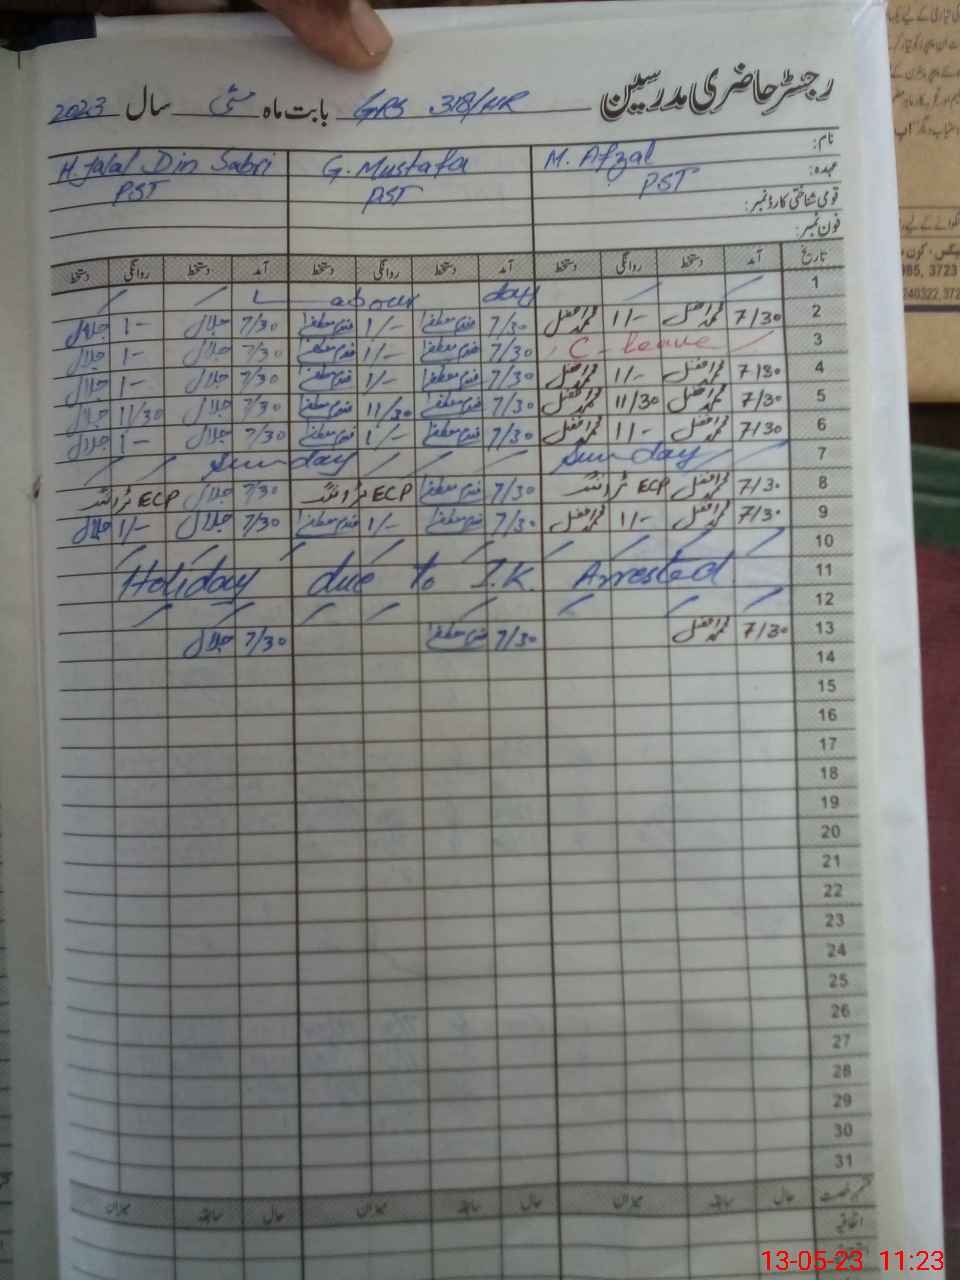 رجسٹر حاضری مدرسین GPS 318/HR بابت ماہ مئی سال 2023
نام: M. Afzal G. Mustafa H. Jalal Din Sabri
عہدہ: PST PST PST
قومی شناختی کارڈ نمبر:
فون نمبر:
تاریخ آمد دستخط روانگی دستخط آمد دستخط روانگی دستخط آمد دستخط روانگی دستخط
1 Labour day
2 7/30 محمد افضل 1/- محمد افضل 7/30 غلام مصطفیٰ 1/- غلام مصطفیٰ 7/30 جلال 1- جلال
3 C-leave 7/30 غلام مصطفیٰ 1/- غلام مصطفیٰ 7/30 جلال 1- جلال
4 7/30 محمد افضل 1/- محمد افضل 7/30 غلام مصطفیٰ 1/- غلام مصطفیٰ 7/30 جلال 1- جلال
5 7/30 محمد افضل 11/30 محمد افضل 7/30 غلام مصطفیٰ 11/30 غلام مصطفیٰ 7/30 جلال 11/30 جلال
6 7/30 محمد افضل 1/- محمد افضل 7/30 غلام مصطفیٰ 1/- غلام مصطفیٰ 7/30 جلال 1- جلال
7 Sunday Sunday
8 7/30 محمد افضل ECP 7/30 غلام مصطفیٰ ECP 7/30 جلال ECP
9 7/30 محمد افضل 1/- محمد افضل 7/30 غلام مصطفیٰ 1/- غلام مصطفیٰ 7/30 جلال 1/- جلال
10
11 Holiday due to I.K. Arrested
12
13 7/30 محمد افضل 7/30 غلام مصطفیٰ 7/30 جلال
14
15
16
17
18
19
20
21
22
23
24
25
26
27
28
29
30
31
حال سابقہ میزان حال سابقہ میزان حال سابقہ میزان
اتفاقیہ
13-05-23 11:23